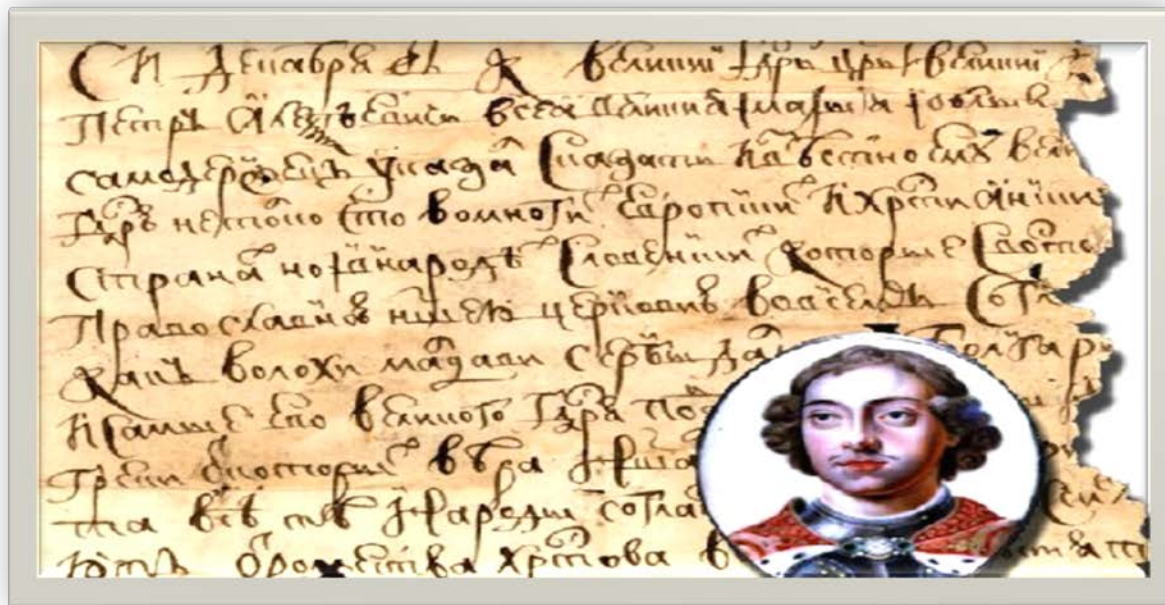 Декабря въ К великиї гдрь црь і великиї
Петръ Алеѯѣевичь всеа великия і малыя і бѣлыя
самодержецъ указалъ сказать извѣстно ему вели
гдрю не толко что во многихъ европскихъ хрстиянскихъ
странахъ но і в народѣхъ словенскихъ которые с восто
православною нашею церковию во всемъ согла
какъ волохи мулдави сербы далма болгары
і самые его великого гдря под
греки от которыхъ вѣра наша
та всѣ тѣ народы согла
ютъ от рожества христова в